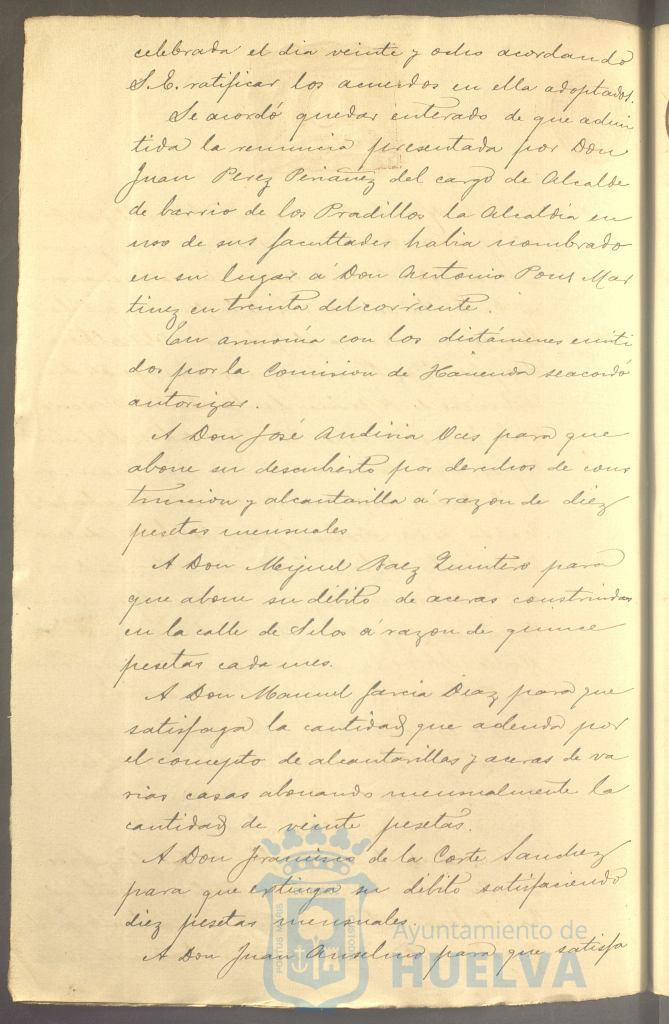 celebrada el dia veinte y ocho acordando
S. E. ratificar los acuerdos en ella adoptados.
Se acordó quedar enterado de que admi
tida la renuncia presentada por Don
Juan Perez Periañez del cargo de Alcalde
de barrio de los Pradillos la Alcaldia en
uso de sus facultades habia nombrado
en su lugar á Don Antonio Pons Mar
tinez en treinta del corriente.
En armonía con los dictámenes emiti
dos por la Comision de Hacienda se acordó
autorizar.
A Don José Andivia para que
abone su descubierto por derechos de cons
truccion y alcantarilla á razon de diez
pesetas mensuales
A Don Miguel Baez Quintero para
que abone su débito de aceras construidas
en la calle de Silos á razon de quince
pesetas cada mes.
A Don Manuel Garcia Diaz para que
satisfaga la cantidad que adeuda por
el concepto de alcantarillas y aceras de va
rias casas abonando mensualmente la
cantidad de veinte pesetas.
A Don Francisco de la Corte Sanchez
para que extinga su débito satisfaciendo
diez pesetas mensuales.
A Don Juan Anselmo para que satisfa
Ayuntamiento de
HUELVA
PORTUS MARIS